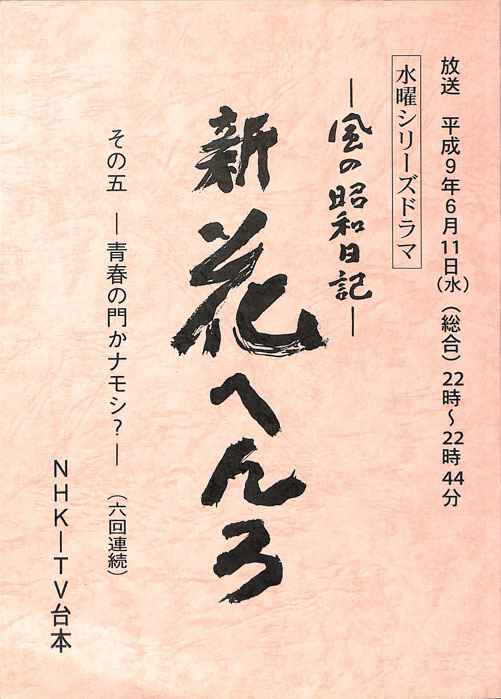 放送　平成9年6月11日(水)（総合）22時～22時44分
水曜シリーズドラマ
―風の昭和日記―
新花へんろ
その五　―青春の門かナモシ？―　（六回連続）
NHK―TV台本